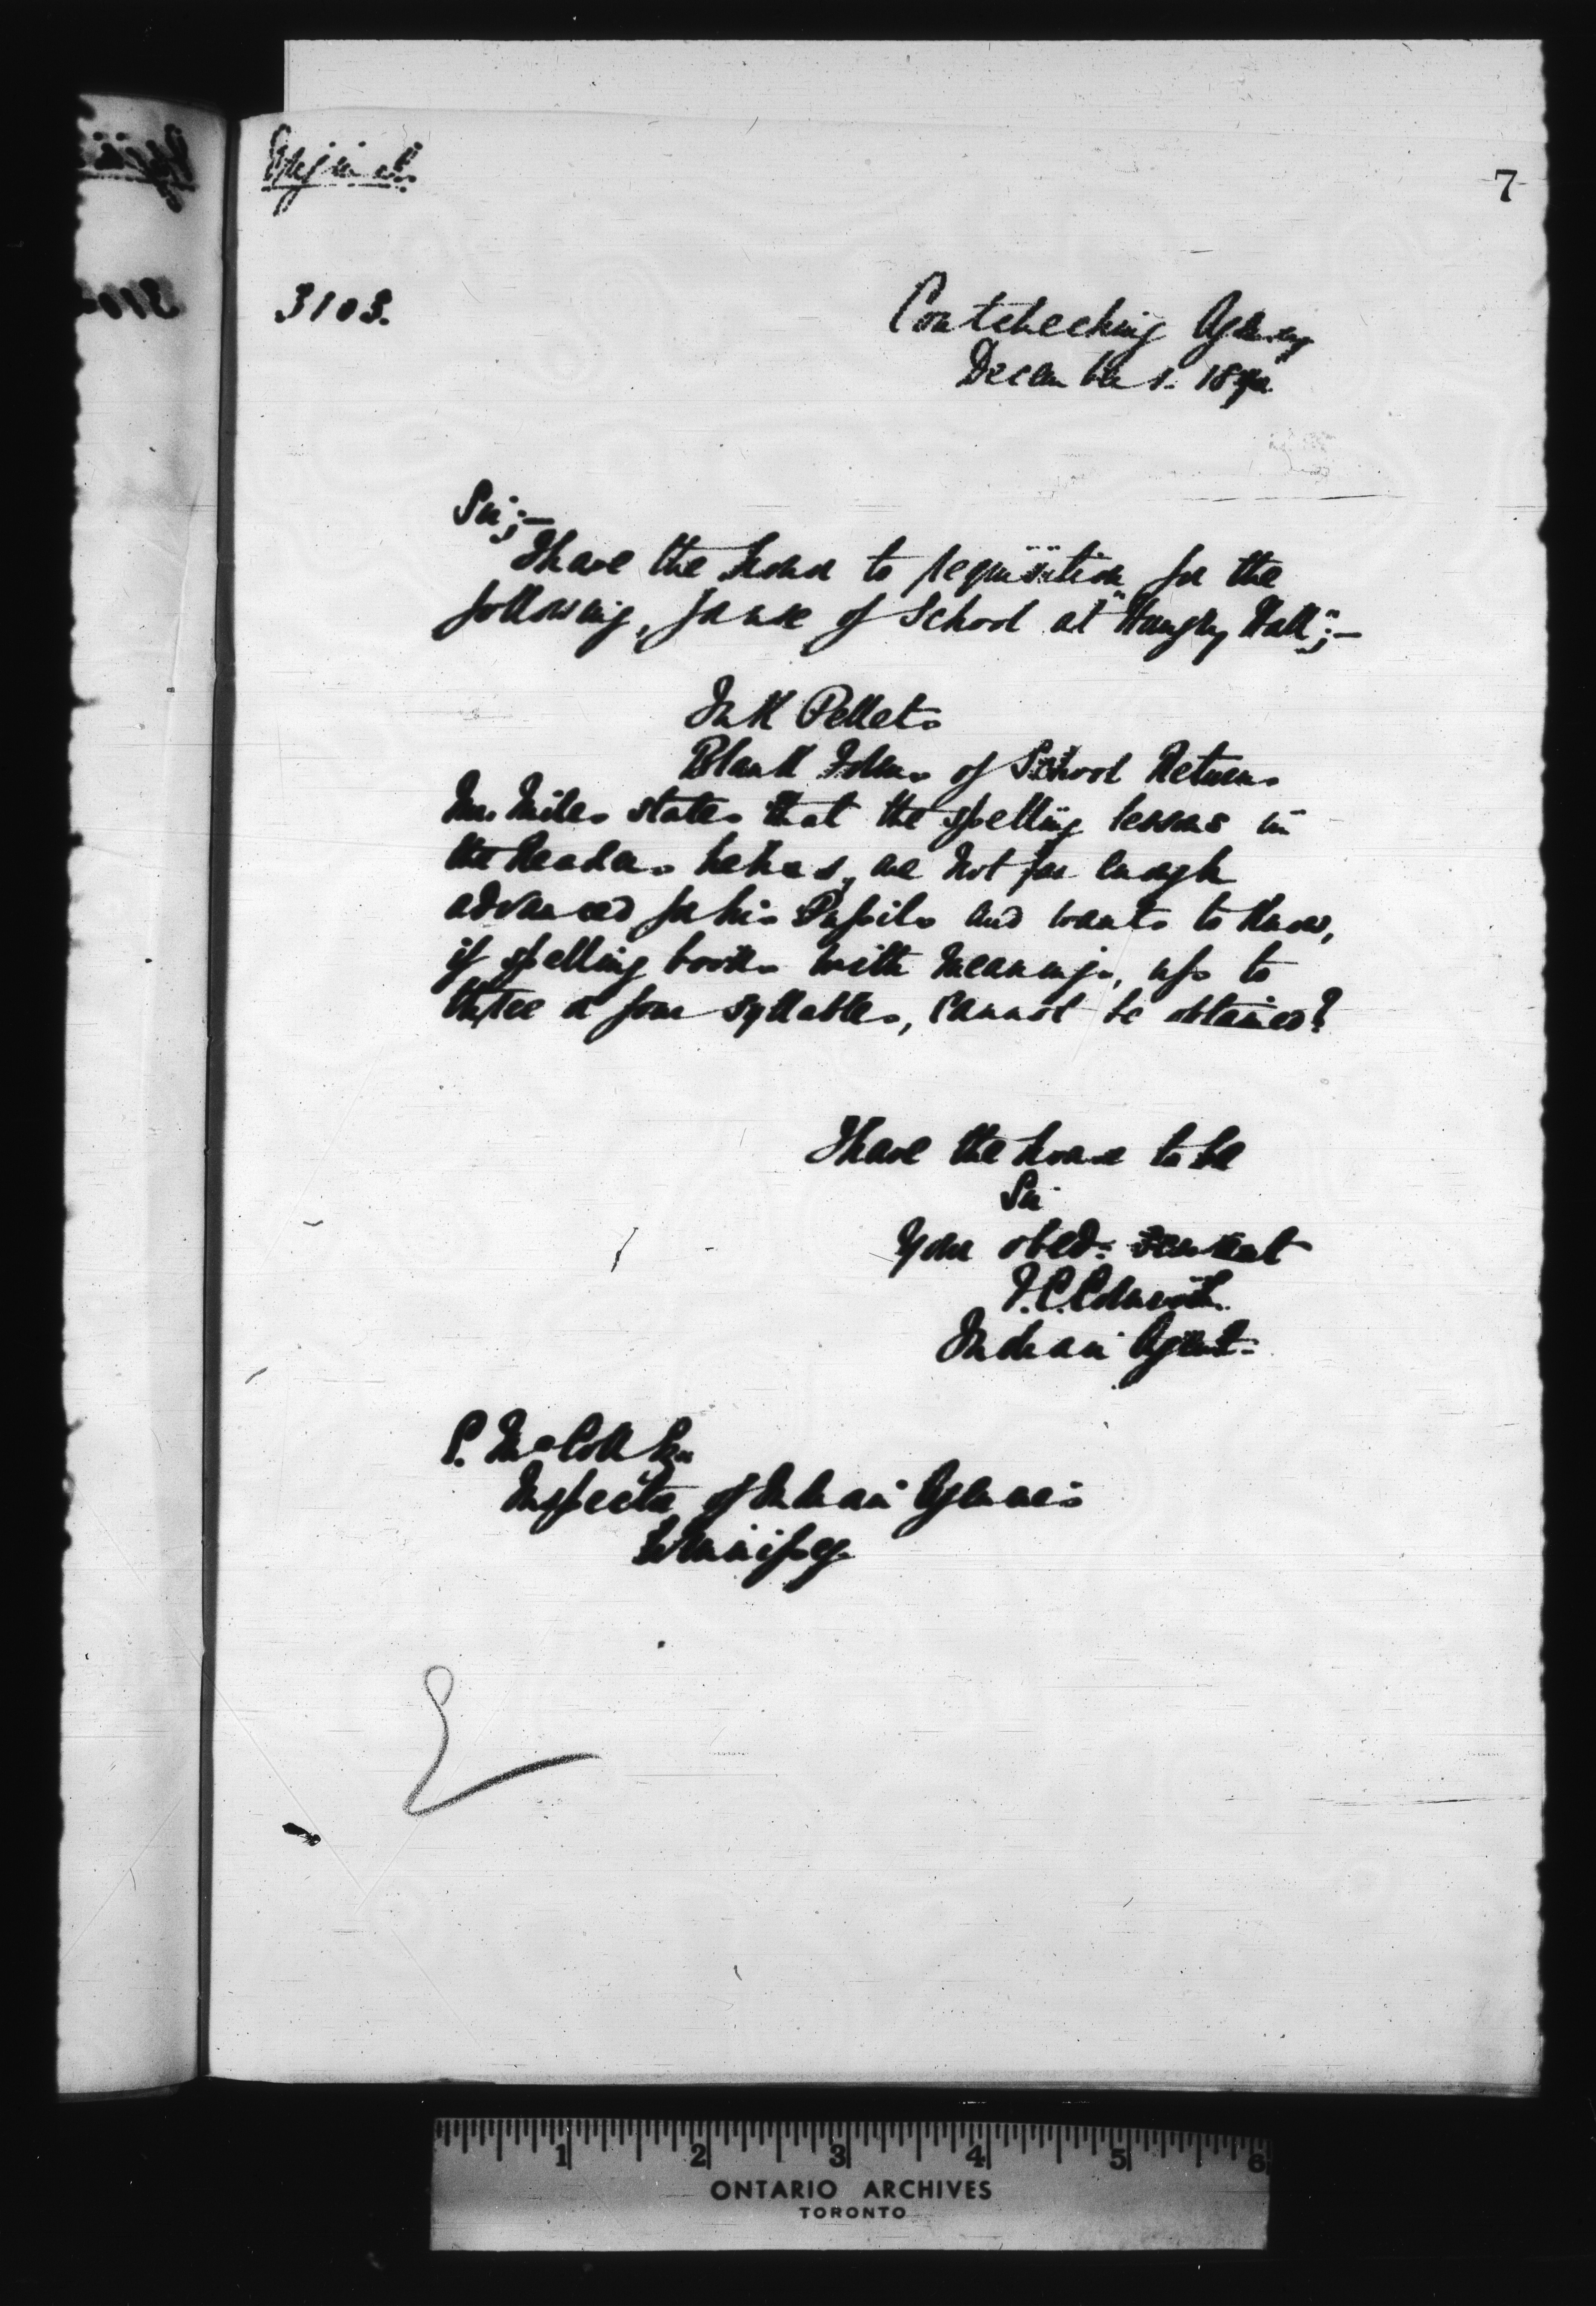 Original.
7
3103.
Coutcheching Agency
December 1. 189
Sir;—
I have the honor to requisition for the
following, for use of School at "Hungry Hall";—
Ink Pellets
Blank Forms of School Returns
Mr. Miles states that the spelling lessons in
the Readers he has, are not far enough
advanced for his Pupils and wants to know,
if spelling books with meanings, up to
three or four syllables, cannot be obtained?
I have the honor to be
Sir
Your obed. servant
Indian Agent.
E. McColl Esq
Inspector of Indian Agencies
Winnipeg
1 2 3 4 5 6
ONTARIO ARCHIVES
TORONTO